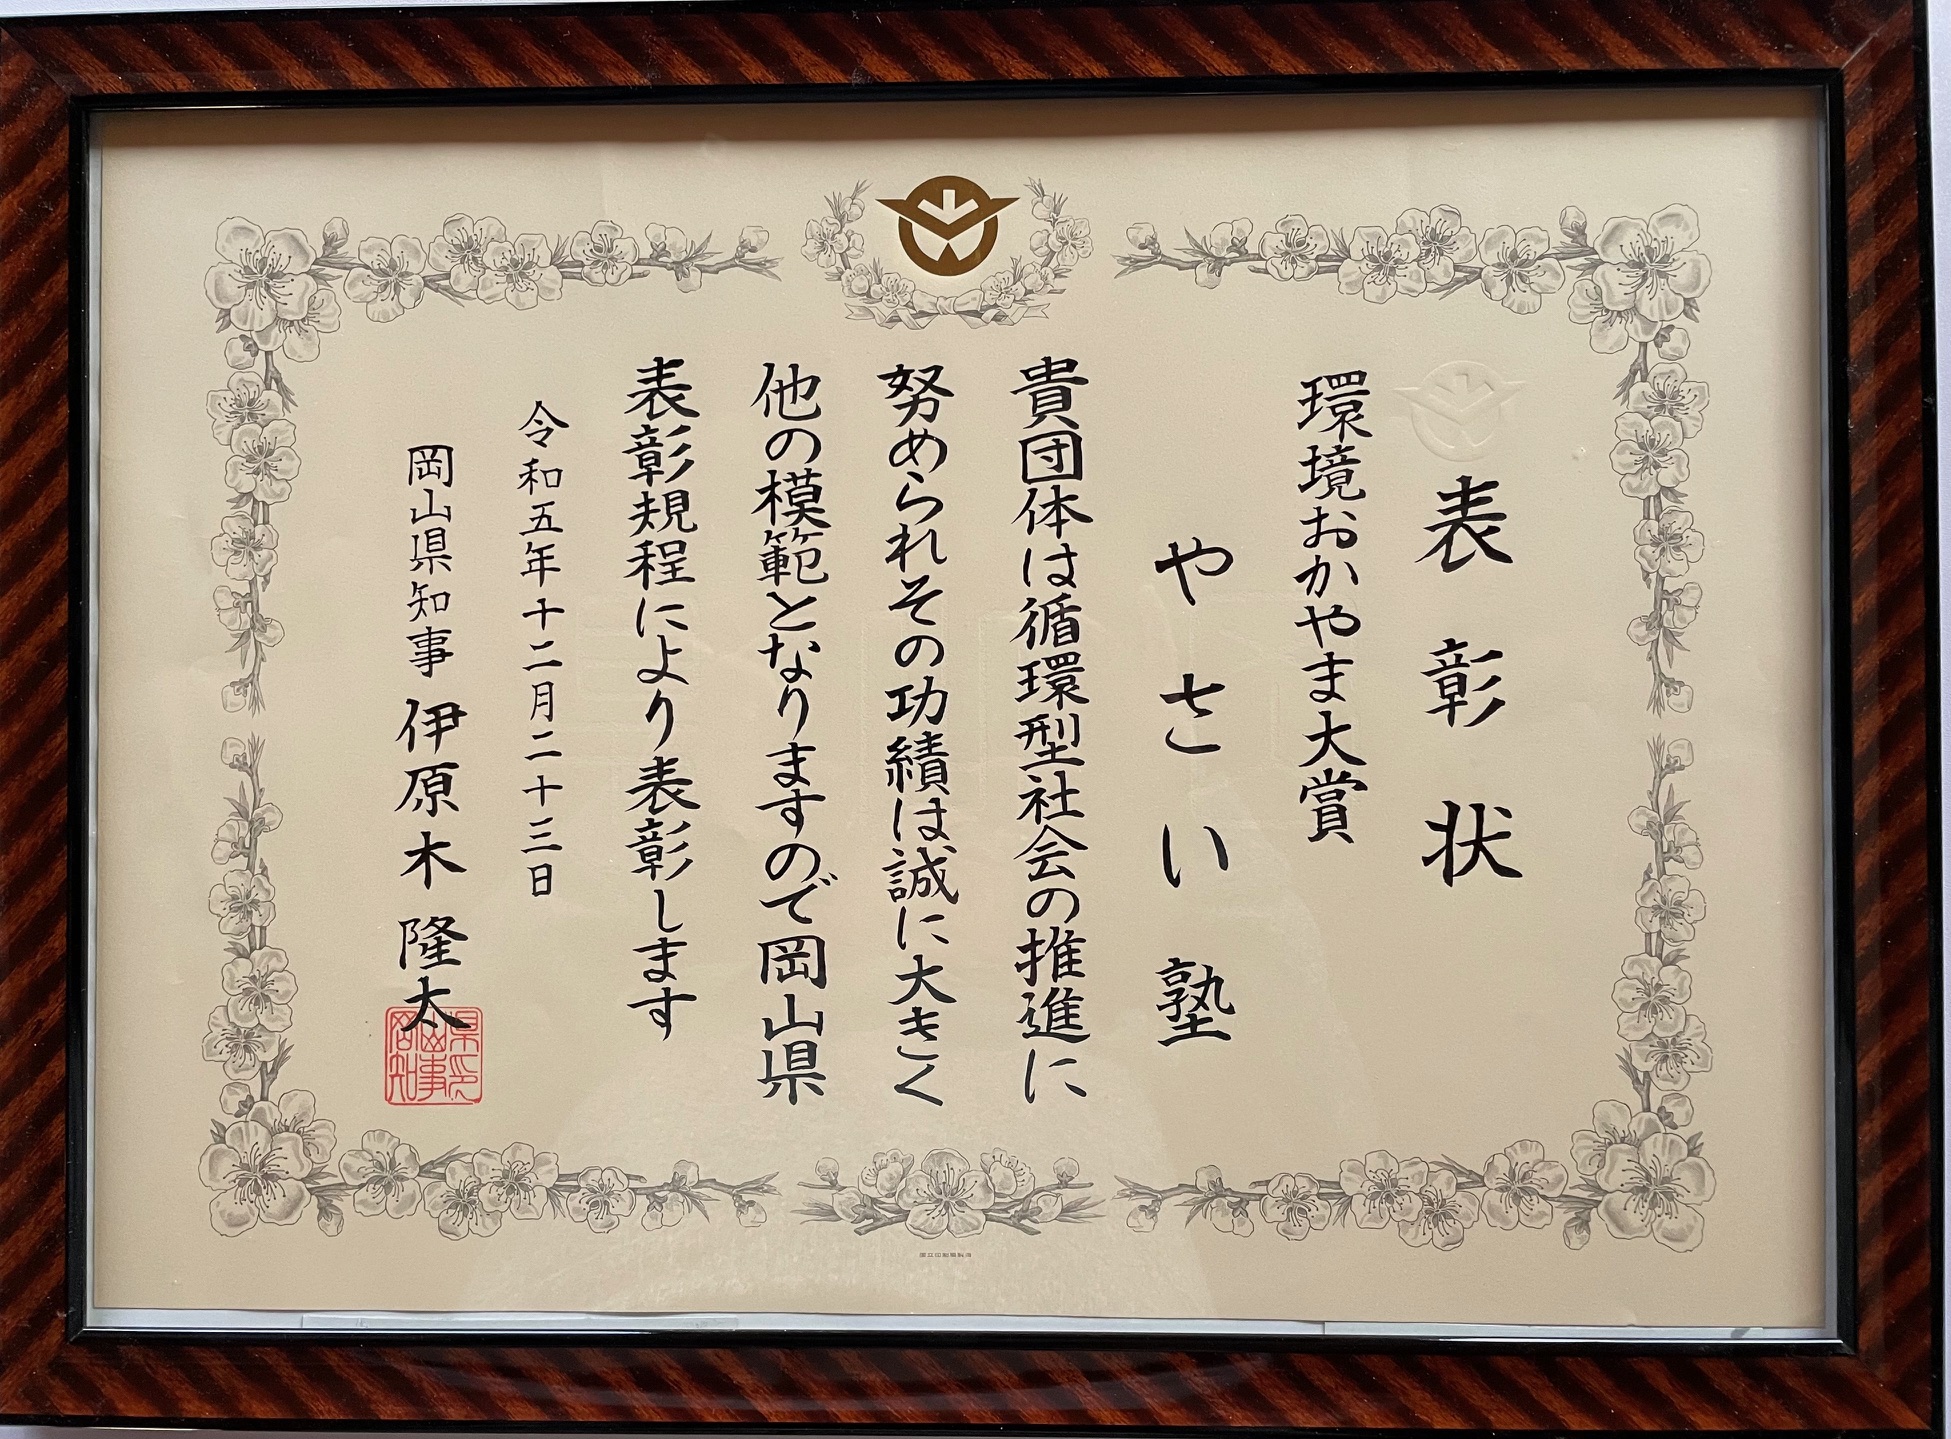 表彰状
環境おかやま大賞
やさい塾
貴団体は循環型社会の推進に
努められその功績は誠に大きく
他の模範となりますので岡山県
表彰規程により表彰します
令和五年十二月二十三日
岡山県知事 伊原木隆太
岡山県知事印
国立印刷局製造